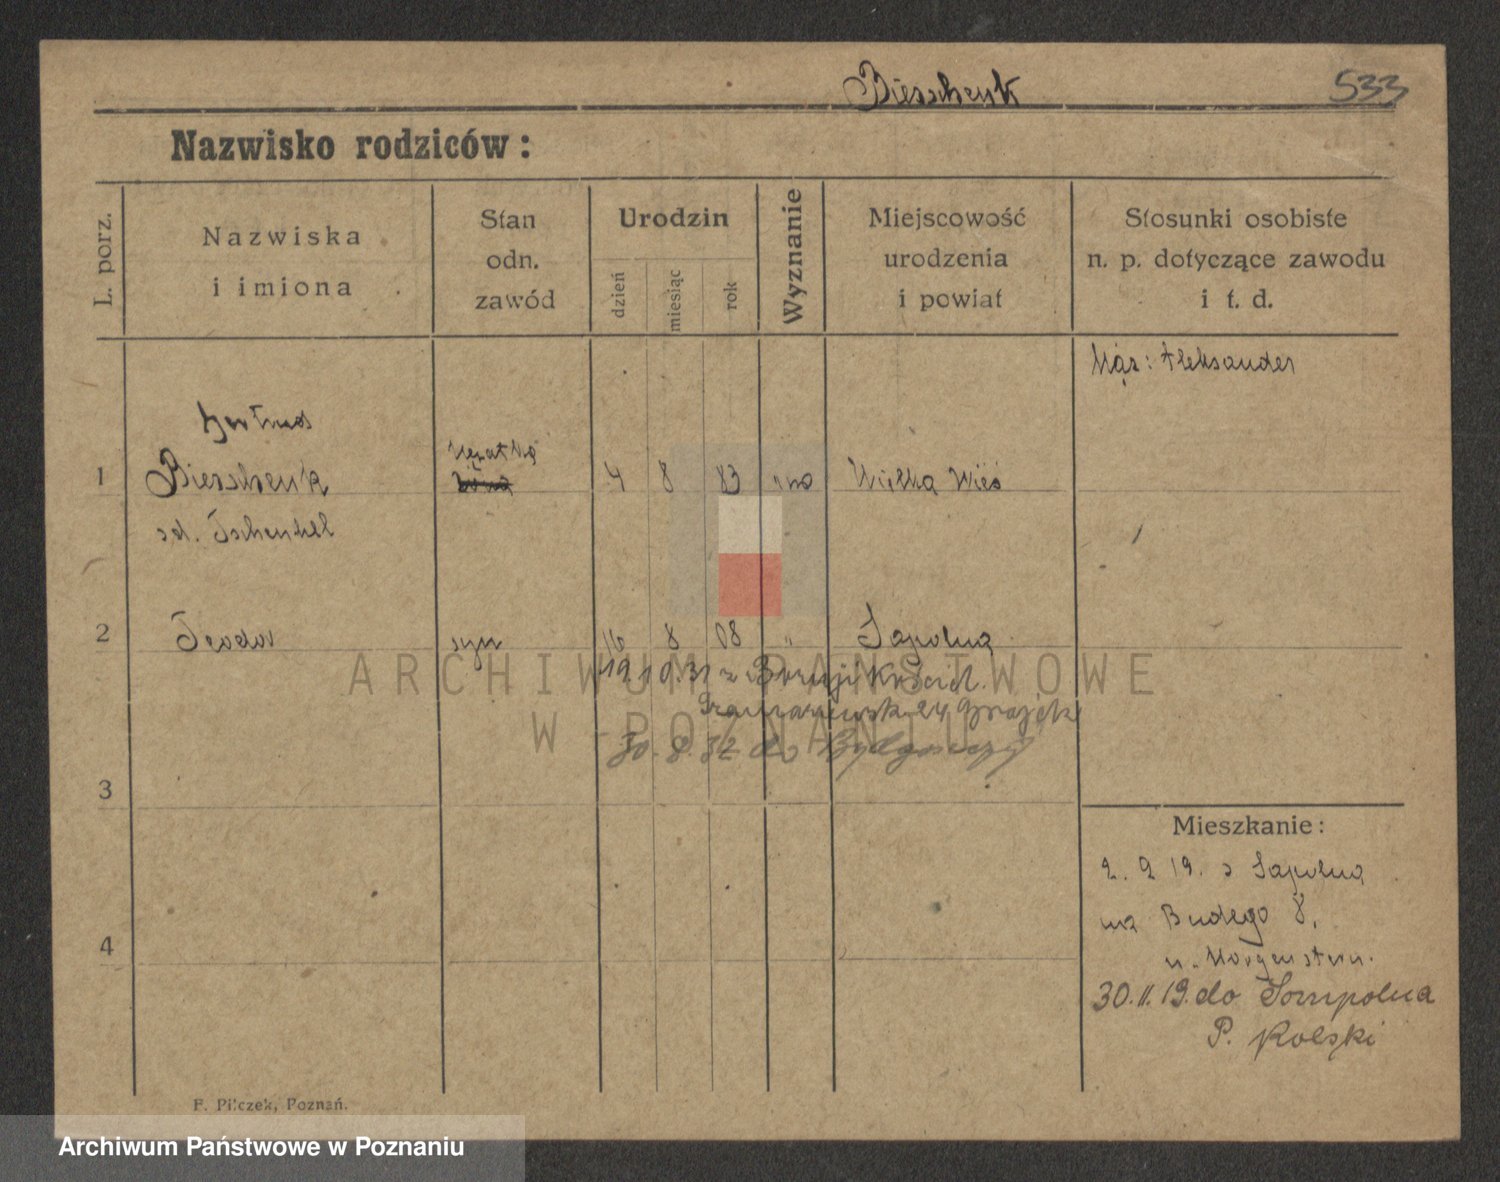 Bierschenk 533
Nazwisko rodziców:
L. porz.
Nazwiska
i imiona
Stan
odn.
zawód
Urodzin
dzień
miesiąc
rok
Wyznanie
Miejscowość
urodzenia
i powiat
Stosunki osobiste
n. p. dotyczące zawodu
i t. d.
Mąż: Aleksander
Gertrud
1 Bierschenk 4 8 83 Wielka Wieś
2 Teodor syn 16 8 08 "
19.10.31 z
30.8.32 do Bydgoszczy
3
4
Mieszkanie:
2. 9 19. z
na Budego 8,
u. Morgenstern.
30.11.19. do Sompolna
P. Kolski
F. Pilczek, Poznań.
ARCHIWUM PAŃSTWOWE
W POZNANIU
Archiwum Państwowe w Poznaniu